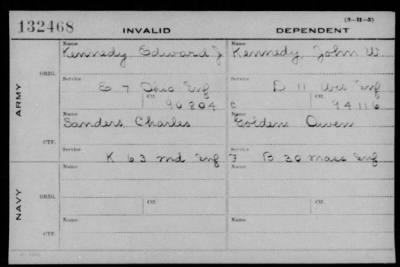 132468 INVALID DEPENDENT (3-11-3)
Name Name
Kennedy Edward J Kennedy, John W
ORIG. Service Service
E 7 Ohio Inf D 11 Wis Inf
Ctf. Ctf.
90204 C 94116
ARMY
Name Name
Sanders Charles Golden Owen
CTF. Service Service
K 63 Ind Inf F B 30 Mass Inf
Name Name
ORIG.
Ctf. Ctf.
NAVY
Name Name
CTF.